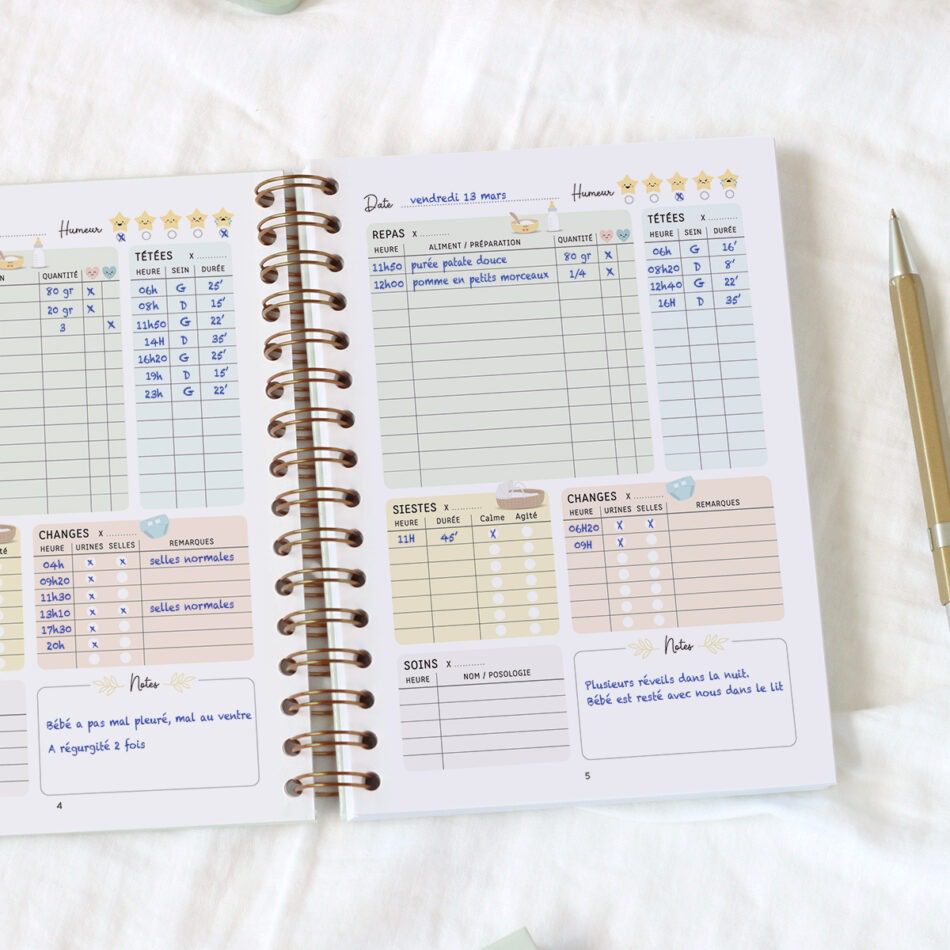 Humeur
N QUANTITÉ
80 gr x
20 gr x
3 x
TÉTÉES x ............
HEURE SEIN DURÉE
06h G 25'
08h D 15'
11h50 G 22'
14H D 35'
16h20 G 25'
19h D 15'
23h G 22'
té
CHANGES x ............
HEURE URINES SELLES REMARQUES
04h x x selles normales
09h20 x
11h30 x
13h10 x x selles normales
17h30 x
20h x
Notes
Bébé a pas mal pleuré, mal au ventre
A régurgité 2 fois
4
Date vendredi 13 mars Humeur
x
REPAS x ............
HEURE ALIMENT / PRÉPARATION QUANTITÉ
11h50 purée patate douce 80 gr x
12h00 pomme en petits morceaux 1/4 x
TÉTÉES x ............
HEURE SEIN DURÉE
06h G 16'
08h20 D 8'
12h40 G 22'
16H D 35'
SIESTES x ............
HEURE DURÉE Calme Agité
11H 45' x
CHANGES x ............
HEURE URINES SELLES REMARQUES
06H20 x x
09H x
SOINS x ............
HEURE NOM / POSOLOGIE
Notes
Plusieurs réveils dans la nuit.
Bébé est resté avec nous dans le lit
5